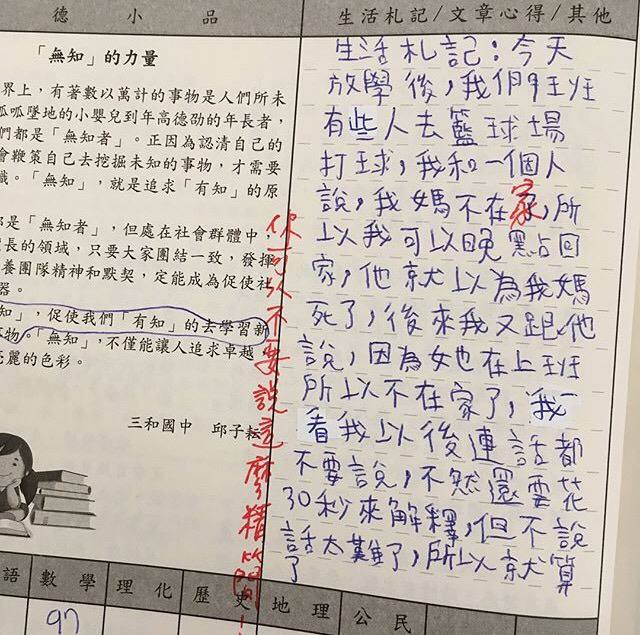 德 小 品
生活札記/文章心得/其他
「無知」的力量
界上，有著數以萬計的事物是人們所未
呱呱墜地的小嬰兒到年高德劭的年長者，
們都是「無知者」。正因為認清自己的
會鞭策自己去挖掘未知的事物，才需要
識。「無知」，就是追求「有知」的原
是「無知者」，但處在社會群體中，
長的領域，只要大家團結一致，發揮
養團隊精神和默契，定能成為促使社
器。
知」，促使我們「有知」的去學習新
事物。「無知」，不僅能讓人追求卓越
亮麗的色彩。
三和國中 邱子耘
你可以不要說這麼精簡！
生活札記：今天
放學後，我們班
有些人去籃球場
打球，我和一個人
說，我媽不在家，所
以我可以晚點回
家，他就以為我媽
死了，後來我又跟他
說，因為她在上班
所以不在家了，我
看我以後連話都
不要說，不然還要花
30秒來解釋，但不說
話太難了，所以就算
了
語 數學 理化 歷史 地理 公民
97